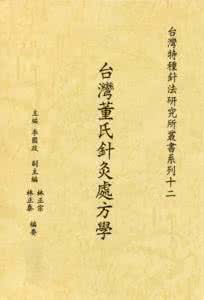 台灣特種針法研究所叢書系列十二
台灣董氏針灸處方學
主編 李國政 副主編 林正宗 林正泰 編要